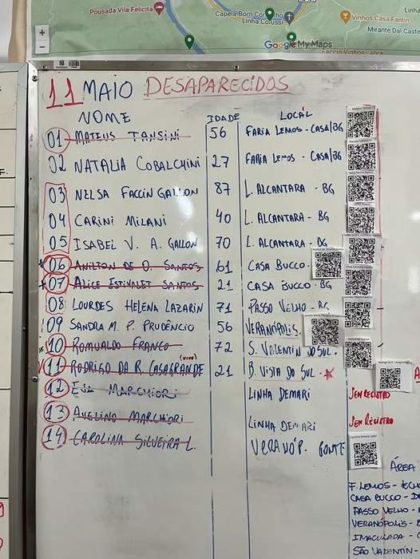 Pousada Vila Felicitá
Capela Bom Conselho
Linha Colussi
Vinhos Casa Fantin
Google My Maps
11 MAIO DESAPARECIDOS
NOME IDADE LOCAL
01 MATEUS TANSINI 56 FARIA LEMOS - CASA/BG
02 NATALIA COBALCHINI 27 FARIA LEMOS - CASA/BG
03 NELSA FACCIN GALLON 87 L. ALCANTARA - BG
04 CARINI MILANI 40 L. ALCANTARA - BG
05 ISABEL V. A. GALLON 70 L. ALCANTARA - BG
06 ANILTON DE O. SANTOS 61 CASA BUCCO
07 ALICE ESTIVALET SANTOS 21 CASA BUCCO - BG
08 LOURDES HELENA LAZARIN 71 PASSO VELHO - BG
09 SANDRA M. P. PRUDÊNCIO 56 VERANÓPOLIS
10 ROMUALDO FRANCO 72 S. VALENTIN DO SUL
11 RODRIGO DA R. CASAGRANDE 21 B. VISTA DO SUL
12 MARCHIORI LINHA DEMARI SEM REGISTRO
13 AVELINO MARCHIORI LINHA DEMARI SEM REGISTRO
14 CAROLINA SILVEIRA L. PONTE
ÁREA
F. LEMOS -
CASA BUCCO -
PASSO VELHO -
VERANÓPOLIS -
IMACULADA
SÃO VALENTIN